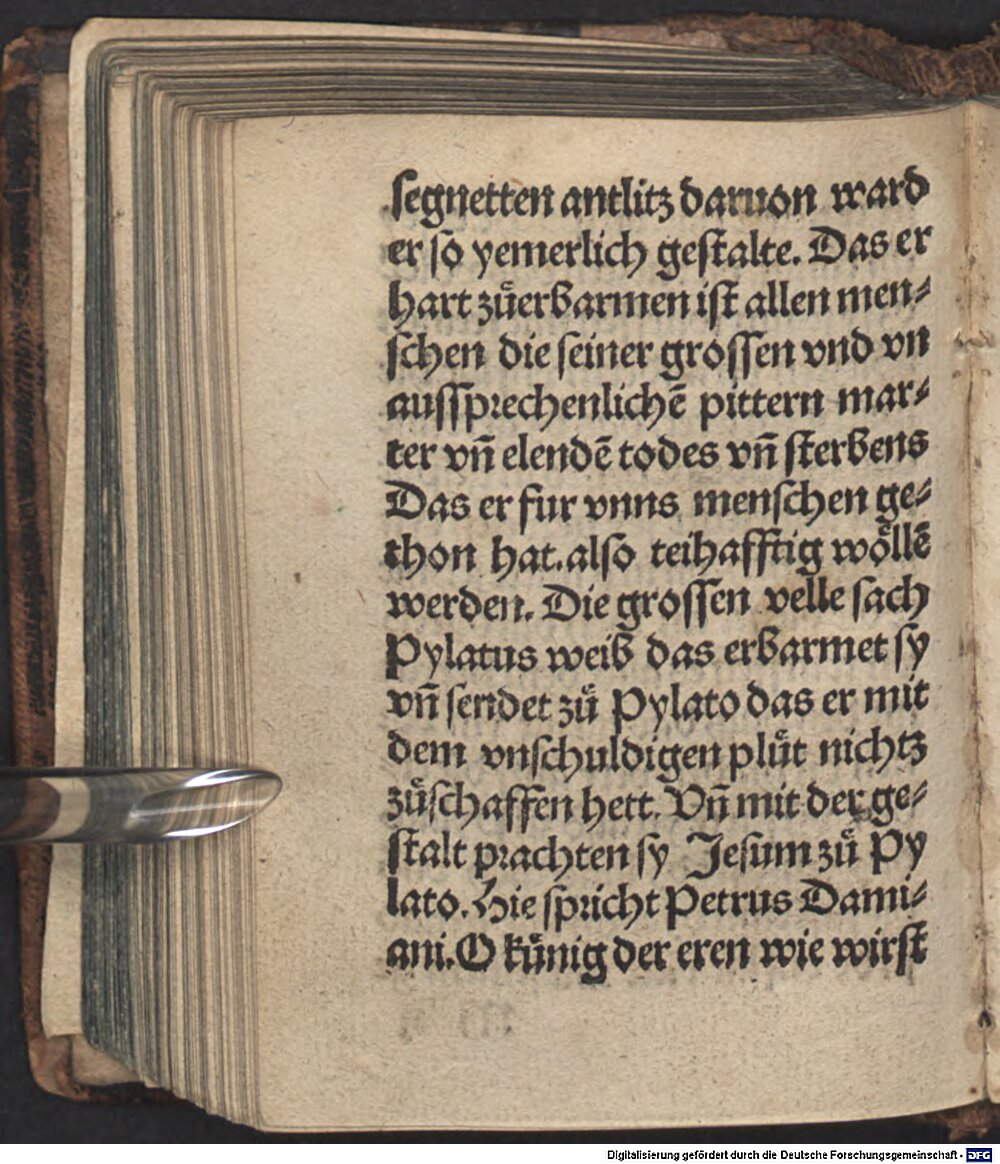 segnetten antlitz daruon ward
er so yemerlich gestalte. Das er
hart zůerbarmen ist allen men⸗
schen die seiner grossen vnd vn
aussprechenlichē pittern mar⸗
ter vn̄ elendē todes vn̄ sterbens
Das er fur vnns menschen ge⸗
thon hat. also teihafftig woͤllē
werden. Die grossen velle sach
Pylatus weib das erbarmet sy
vn̄ sendet zů Pylato das er mit
dem vnschuldigen plůt nichtz
zůschaffen hett. Vn̄ mit der ge⸗
stalt prachten sy Jesum zů Py
lato. Hie spricht Petrus Dami⸗
ani. O kúnig der eren wie wirst
Digitalisierung gefördert durch die Deutsche Forschungsgemeinschaft - DFG